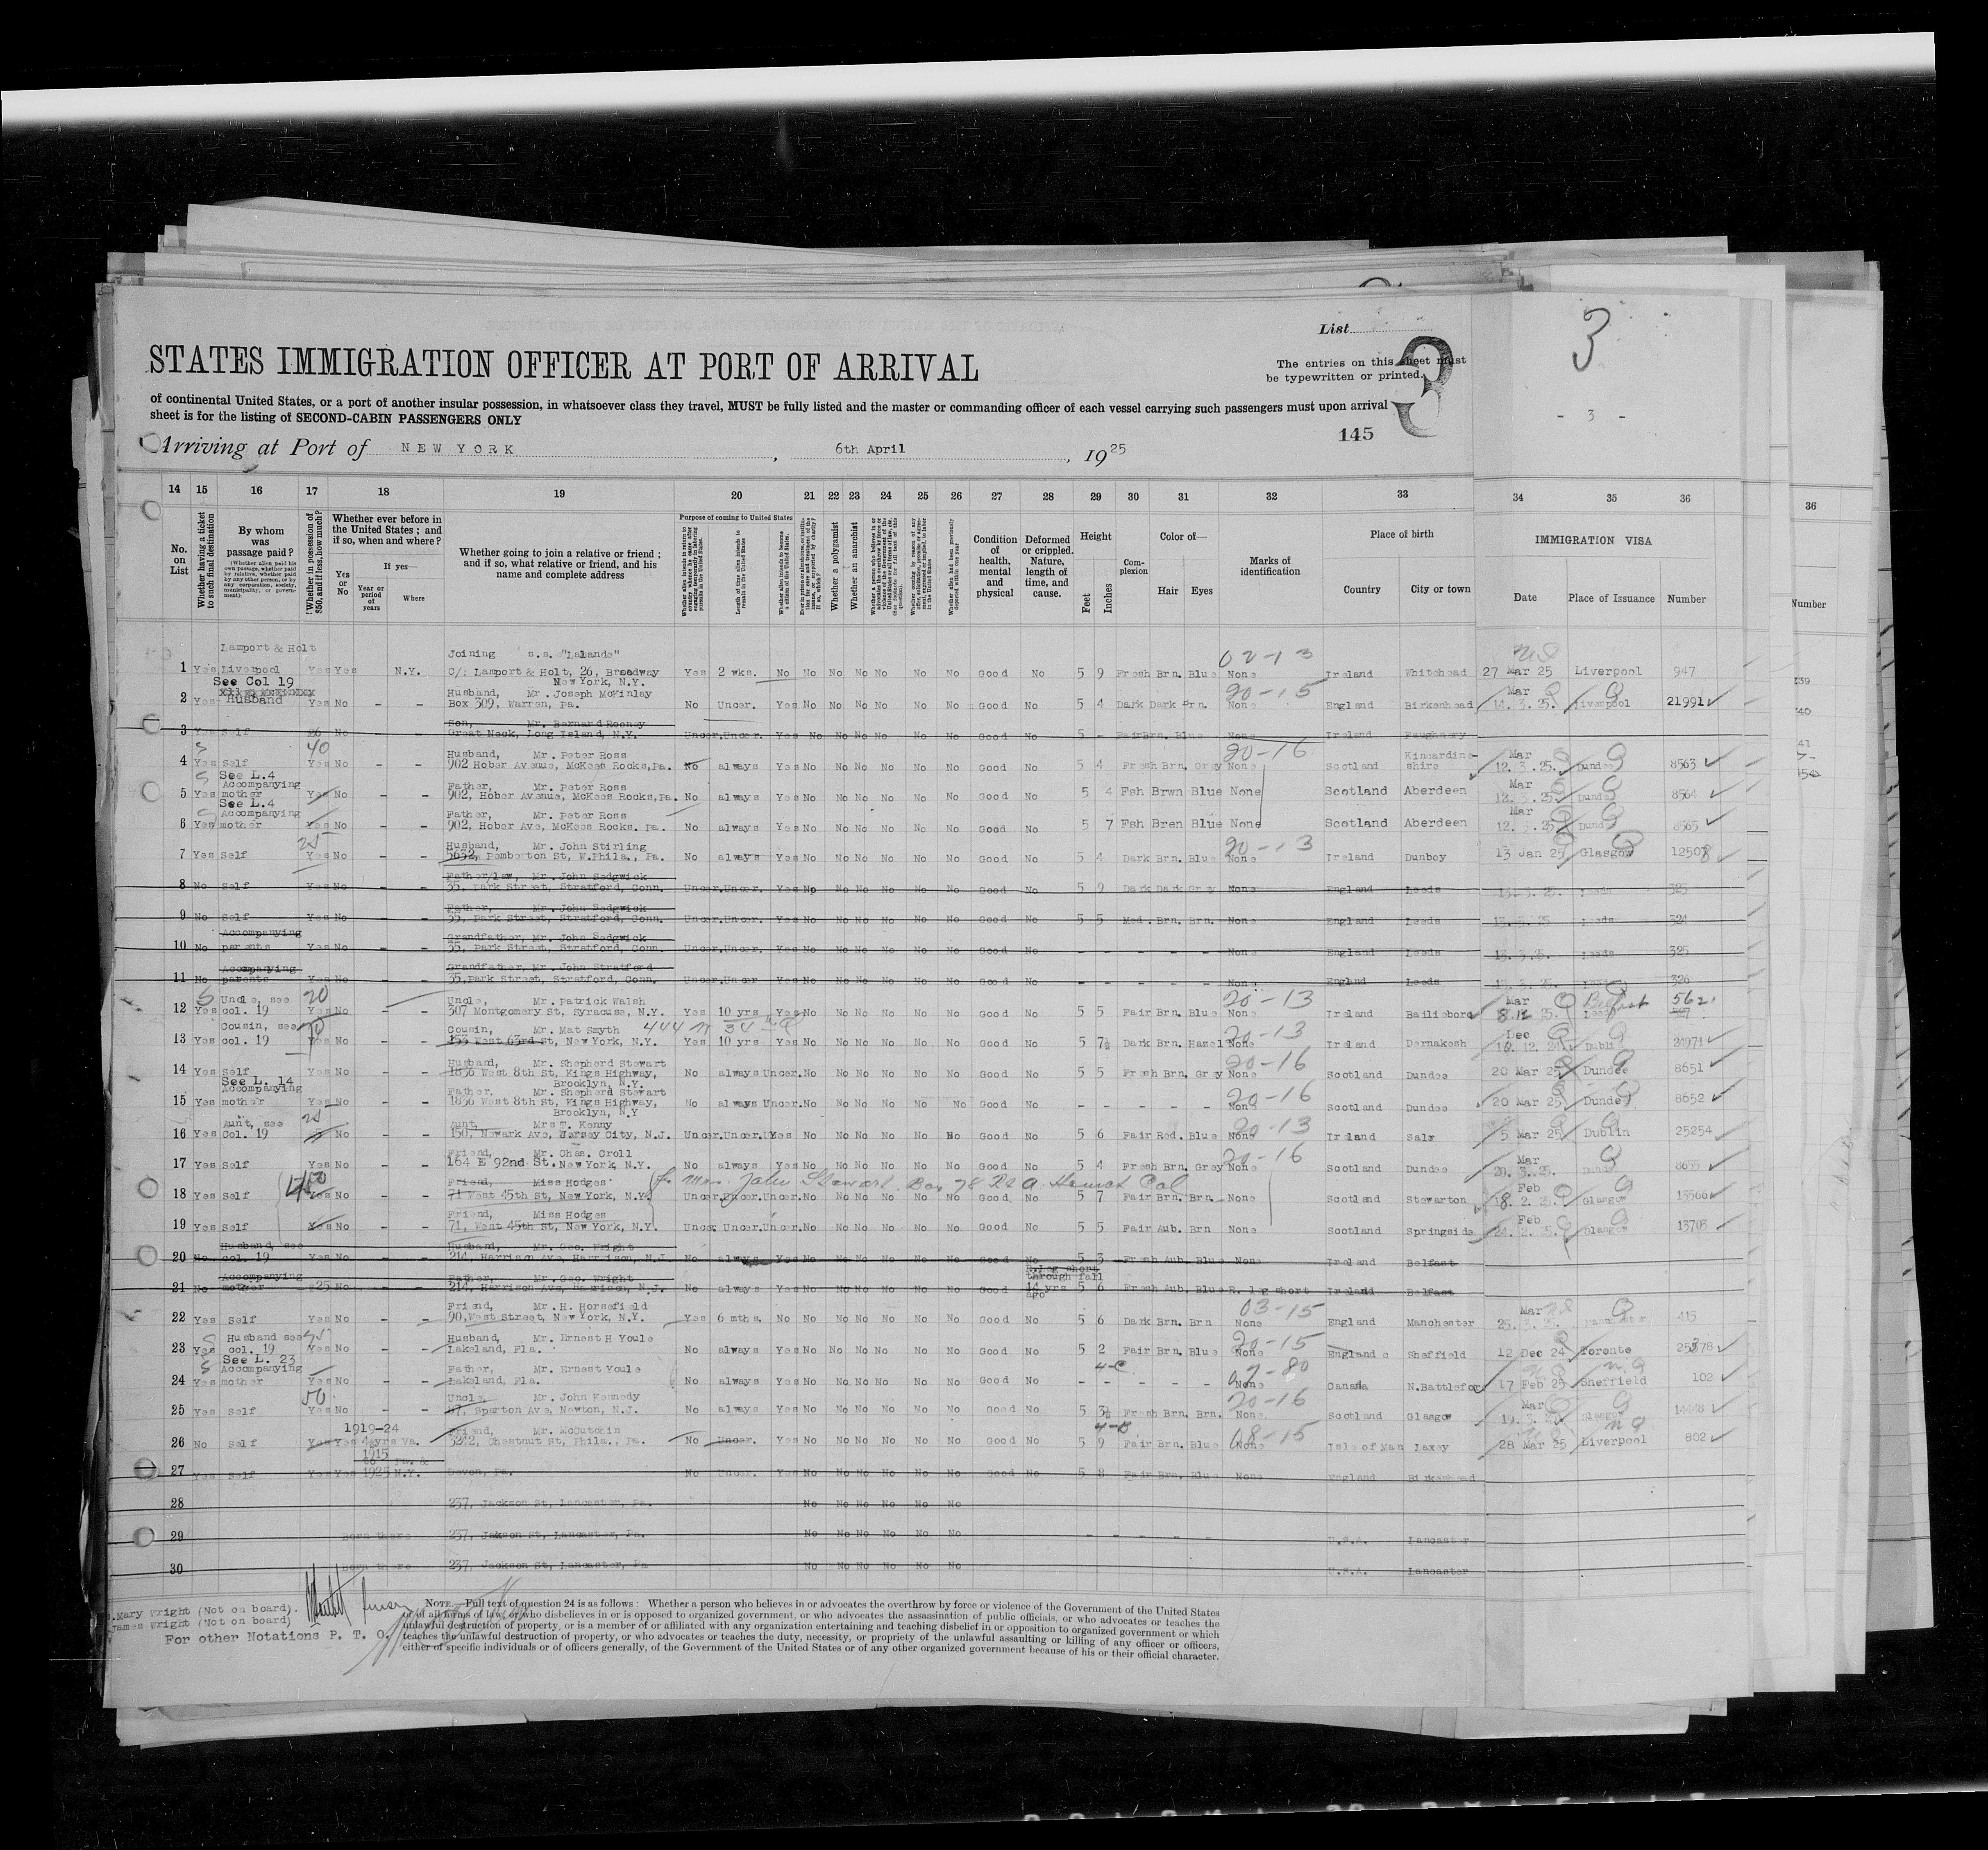 List
3
STATES IMMIGRATION OFFICER AT PORT OF ARRIVAL
The entries on this sheet must
be typewritten or printed.
3
- 3 -
of continental United States, or a port of another insular possession, in whatsoever class they travel, MUST be fully listed and the master or commanding officer of each vessel carrying such passengers must upon arrival
sheet is for the listing of SECOND-CABIN PASSENGERS ONLY
145
Arriving at Port of NEW YORK, 6th April, 1925
14 15 16 17 18 19 20 21 22 23 24 25 26 27 28 29 30 31 32 33 34 35 36
No. on List
Whether having a ticket to such final destination
By whom was passage paid?
Whether ever before in the United States; and if so, when and where?
If yes—
Yes or No
Year or period of years
Where
Whether going to join a relative or friend; and if so, what relative or friend, and his name and complete address
Purpose of coming to United States
Whether a polygamist
Whether an anarchist
Condition of health, mental and physical
Deformed or crippled. Nature, length of time, and cause.
Height
Feet
Inches
Complexion
Color of—
Hair
Eyes
Marks of identification
Place of birth
Country
City or town
IMMIGRATION VISA
Date
Place of Issuance
Number
36
Number
Lamport & Holt Joining s.s. "Lalande" 02-13
1 Yes Liverpool Yes Yes N.Y. C/: Lamport & Holt, 26, Broadway Yes 2 wks. No No No No No No No Good No 5 9 Fresh Brn. Blue None Ireland Whitehead 27 Mar 25 Liverpool 947
New York, N.Y.
See Col 19 Husband, Mr. Joseph McKinlay 20-15 Mar
2 Yes Husband Yes No - - Box 309, Warren, Pa. No Uncer. Yes No No No No No No Good No 5 4 Dark Dark Brn. None England Birkenhead 14.3.25. Liverpool 21991
Son, Mr. Bernard Rooney
3 Yes Self No - - Great Neck, Long Island, N.Y. Uncer. Uncer. Yes No No No No No No Good No 5 - Fair Brn. Blue None Ireland
40 Husband, Mr. Peter Ross 20-16 Kincardine- Mar
4 Yes Self Yes No - - 902 Hober Avenue, McKees Rocks, Pa. No always Yes No No No No No No Good No 5 4 Fresh Brn. Grey None Scotland shire 12.3.25. Dundee 8563
See L.4
Accompanying Father, Mr. Peter Ross Mar
5 Yes mother Yes No - - 902, Hober Avenue, McKees Rocks, Pa. No always Yes No No No No No No Good No 5 4 Fsh Brwn Blue None Scotland Aberdeen 12.3.25. Dundee 8564
See L.4
Accompanying Father, Mr. Peter Ross Mar
6 Yes mother Yes No - - 902, Hober Ave, McKees Rocks. Pa. No always Yes No No No No No No Good No 5 7 Fsh Bren Blue None Scotland Aberdeen 12.3.25 Dundee 8565
25 Husband, Mr. John Stirling 20-13
7 Yes Self Yes No - - 5632, Pemberton St, W.Phila., Pa. No always Yes No No No No No No Good No 5 4 Dark Brn. Blue None Ireland Dunboy 13 Jan 25 Glasgow 12508
Father/law, Mr. John Sedgwick
8 No Self Yes No - - 35, Park Street, Stratford, Conn. Uncer. Uncer. Yes No No No No No No Good No 5 9 Dark Dark Grey None England Leeds 13.3.25. Leeds 323
Father, Mr. John Sedgwick
9 No Self Yes No - - 35, Park Street, Stratford, Conn. Uncer. Uncer. Yes No No No No No No Good No 5 5 Med. Brn. Brn. None England Leeds 13.3.25 Leeds 324
Accompanying Grandfather, Mr. John Sedgwick
10 No parents Yes No - - 35, Park Street, Stratford, Conn. Uncer. Uncer. Yes No No No No No No Good No - - - - - None England Leeds 13.3.25. Leeds 325
Acompanying Grandfather, Mr. John Stratford
11 No parents Yes No - - 35, Park Street, Stratford, Conn. Uncer. Uncer Yes No No No No No No Good No - - - - - None England Leeds 13.3.25. 326
Uncle, see 20 Uncle, Mr. Patrick Walsh 20-13 Mar Belfast 562
12 Yes col. 19 Yes No 307 Montgomery St, Syracuse, N.Y. Yes 10 yrs Yes No No No No No No Good No 5 5 Fair Brn. Blue None Ireland Bailieboro 25.
Cousin, see Cousin, Mr. Mat Smyth 444 W 34 20-13 Dec
13 Yes col. 19 Yes No - - 153 West 63rd St, New York, N.Y. Yes 10 yrs Yes No No No No No No Good No 5 7½ Dark Brn. Hazel None Ireland Dernakesh 12.24 Dublin 24971
Husband, Mr. Shepherd Stewart 20-16
14 Yes Self Yes No - - 1836 West 8th St, Kings Highway, No always Uncer. No No No No No No Good No 5 5 Fresh Brn. Grey None Scotland Dundee 20 Mar 25 Dundee 8651
Brooklyn, N.Y.
See L. 14
Accompanying Father, Mr. Shepherd Stewart 20-16
15 Yes mother Yes No - - 1836 West 8th St, Kings Highway, No always Uncer. No No No No No No Good No - - - - - None Scotland Dundee 20 Mar 25 Dundee 8652
Brooklyn, N.Y
Aunt, see 25 Aunt, Mrs T. Kenny 20-13
16 Yes Col. 19 No - - 150, Newark Ave, Jersey City, N.J. Uncer. Uncer. Yes No No No No No No Good No 5 6 Fair Red. Blue None Ireland 5 Mar 25 Dublin 25254
Friend, Mr. Chas. Croll 20-16 Mar
17 Yes Self Yes No - - 164 E 92nd St. New York, N.Y. No always Yes No No No No No No Good No 5 4 Fresh Brn. Grey None Scotland Dundee 20.3.25. Dundee
Friend, Miss Hodges Mrs. John Stewart Box 78 Hemet Cal Feb
18 Yes Self Yes No - - 71 West 45th St, New York, N.Y. Uncer. Uncer. Uncer. No No No No No No Good No 5 7 Fair Brn. Brn. None Scotland Stewarton 18.2.25. Glasgow 13566
Friend, Miss Hodges Feb
19 Yes Self Yes No - - 71, West 45th St, New York, N.Y. Uncer Uncer. Uncer. No No No No No No Good No 5 5 Fair Aub. Brn None Scotland Springside 24.2.25. Glasgow 13703
Husband, see Husband, Mr. Geo. Wright
20 No col. 19 Yes No - - 214, Harrison Ave, Harrison, N.J. No always Yes No No No No No No Good No 5 3 Fresh Aub. Blue None Ireland Belfast
Accompanying Father, Mr. Geo. Wright R.leg short through fall
21 No mother $25 No - - 214, Harrison Ave, Harrison, N.J. No always Yes No No No No No No Good 14 yrs ago 5 6 Fresh Aub. Blue R. leg short Ireland Belfast
Friend, Mr. H. Horsefield 03-15 Mar
22 Yes Self Yes No - - 90, West Street, New York, N.Y. Yes 6 mths. No No No No No No No Good No 5 6 Dark Brn. Brn None England Manchester 25.3.25. Manchester 415
Husband see Husband, Mr. Ernest H Youle 20-15
23 Yes col. 19 Yes No - - Lakeland, Fla. No always Yes No No No No No No Good No 5 2 Fair Brn. Blue None England Sheffield 12 Dec 24 Toronto 25378
See L. 23
Accompanying Father, Mr. Ernest Youle 4-C 07-80
24 Yes mother Yes No - - Lakeland, Fla. No always Yes No No No No No No Good No - - - - - None Canada N.Battlefor 17 Feb 25 Sheffield 102
50 Uncle, Mr. John Kennedy 20-16 Mar
25 Yes Self Yes No - - 87, Spurton Ave, Newton, N.J. No always Yes No No No No No No Good No 5 3½ Fresh Brn. Brn. None. Scotland Glasgow 19.3.25 Glasgow 14448
1919-24 Friend, Mr. McCutchin 4-B 08-15
26 No Self Yes Yes 4½yrs Va. 3242, Chestnut St, Phila., Pa. No Uncer. Yes No No No No No No Good No 5 9 Fair Brn. Blue None Isle of Man Laxey 28 Mar 25 Liverpool 802
1915 to Pa. &
27 Yes Self Yes Yes 1925 N.Y. Devon, Pa. No Uncer. Yes No No No No No No Good No 5 8 Fair Brn. Blue None England Birkenhead
28 237, Jackson St, Lancaster, Pa. No No No No No No
29 Born there 237, Jakson St, Lancaster, Pa. No No No No No No - - - - - U.S.A. Lancaster
30 Born there 237, Jackson St, Lancaster, Pa No No No No No No U.S.A. Lancaster
Mary Wright (Not on board).
James Wright (Not on board)
For other Notations P. T. O.
NOTE.—Full text of question 24 is as follows: Whether a person who believes in or advocates the overthrow by force or violence of the Government of the United States
or of all forms of law, or who disbelieves in or is opposed to organized government, or who advocates the assassination of public officials, or who advocates or teaches the
unlawful destruction of property, or is a member of or affiliated with any organization entertaining and teaching disbelief in or opposition to organized government or which
teaches the unlawful destruction of property, or who advocates or teaches the duty, necessity, or propriety of the unlawful assaulting or killing of any officer or officers,
either of specific individuals or of officers generally, of the Government of the United States or of any other organized government because of his or their official character.